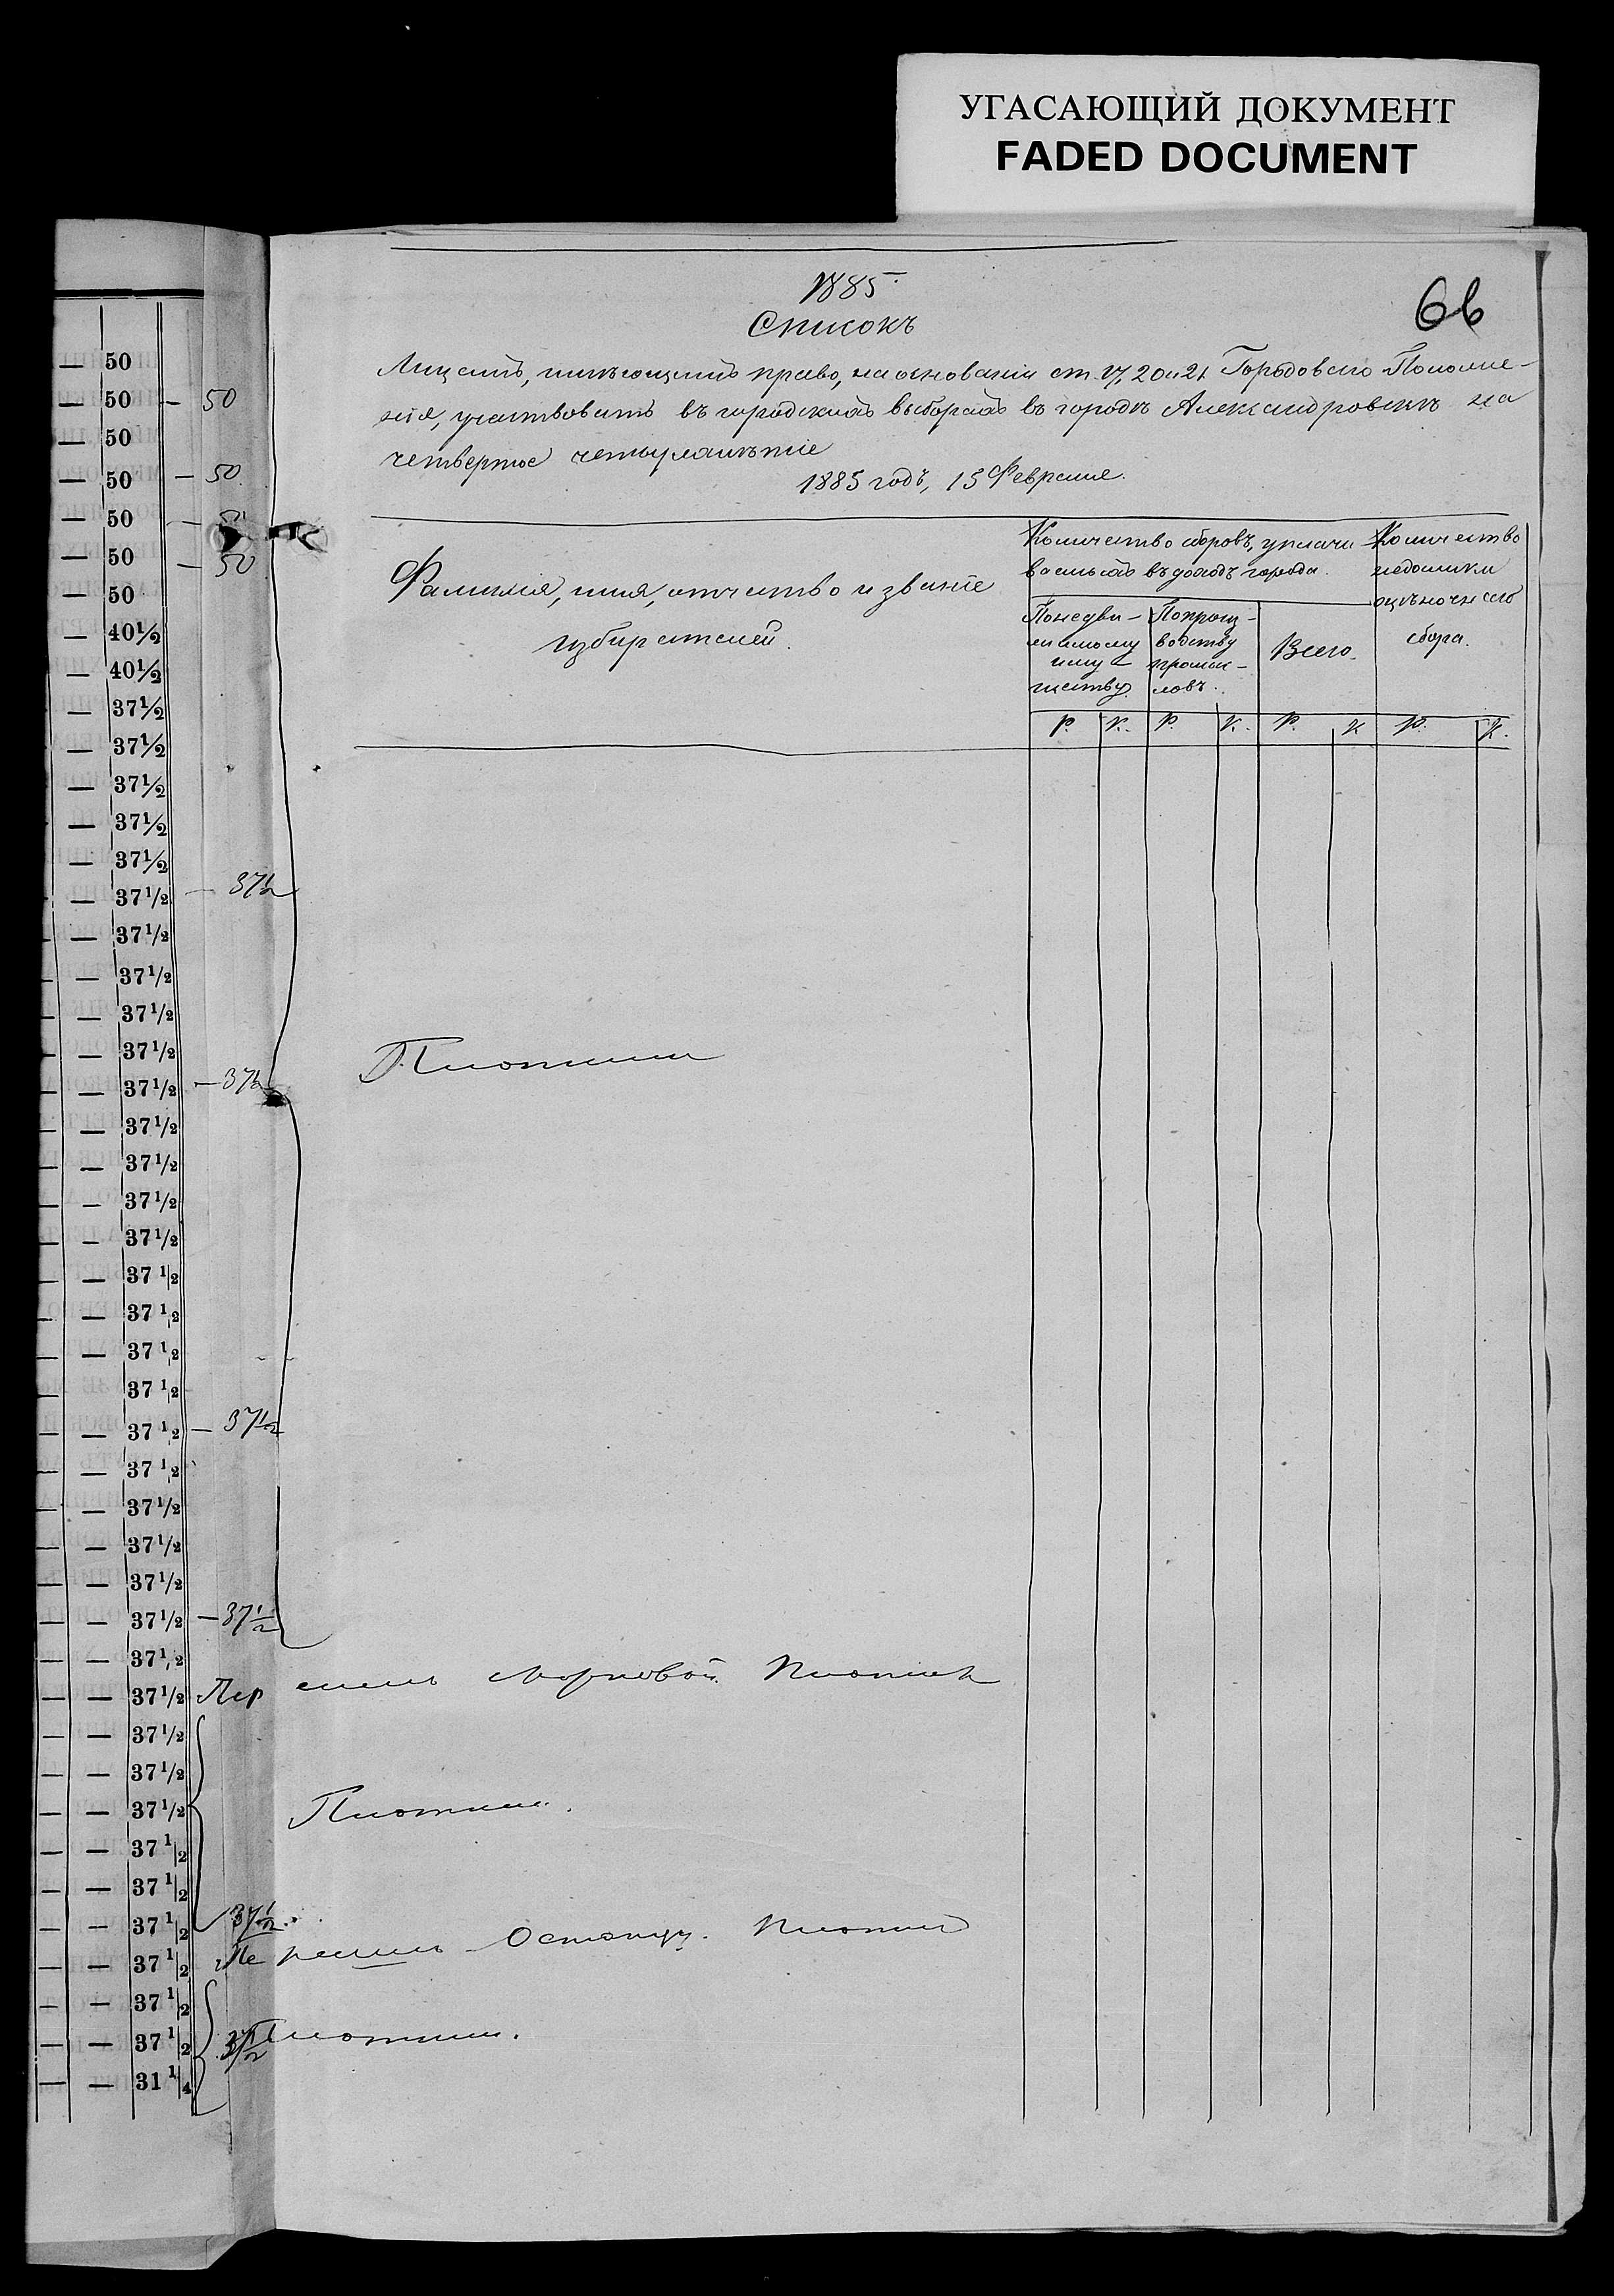 УГАСАЮЩИЙ ДОКУМЕНТ
FADED DOCUMENT
66
1885
Списокъ
Лицамъ, имѣющимъ право, на основаніи ст. 17, 20 и 21 Городового Положе-
нія, участвовать въ городскихъ выборахъ въ городѣ Александровскѣ на
четвертое четырехлѣтіе
1885 годъ, 15 Февраля.
Фамилія, имя, отчество и званіе
избирателей.
Количество сборовъ, уплачи
ваемыхъ въ доходъ города.
По недви-
жимому
иму-
ществу
По произ-
водству
промыс-
ловъ.
Всего.
Количество
недоимки
оцѣночнаго
сбора.
Р. К. Р. К. Р. К Р. К.
— 50
— 50 — 50
— 50
— 50 — 50
— 50
— 50 — 50
— 50
— 40½
— 40½
— 37½
— 37½
— 37½
— 37½
— 37½
— 37½ — 37½
— 37½
— 37½
— 37½
— 37½
— 37½ — 37½
— 37½
— 37½
— 37½
— 37½
— 37½
— 37½
— 37½
— 37½
— 37½ — 37½
— 37½
— 37½
— 37½
— 37½
— 37½ — 37½
— 37½
— 37½
— 37½
— 37½
— 37½
— 37½
— 37½
— 37½ 37½
— 37½
— 37½
— 37½ 37½
— 31¼